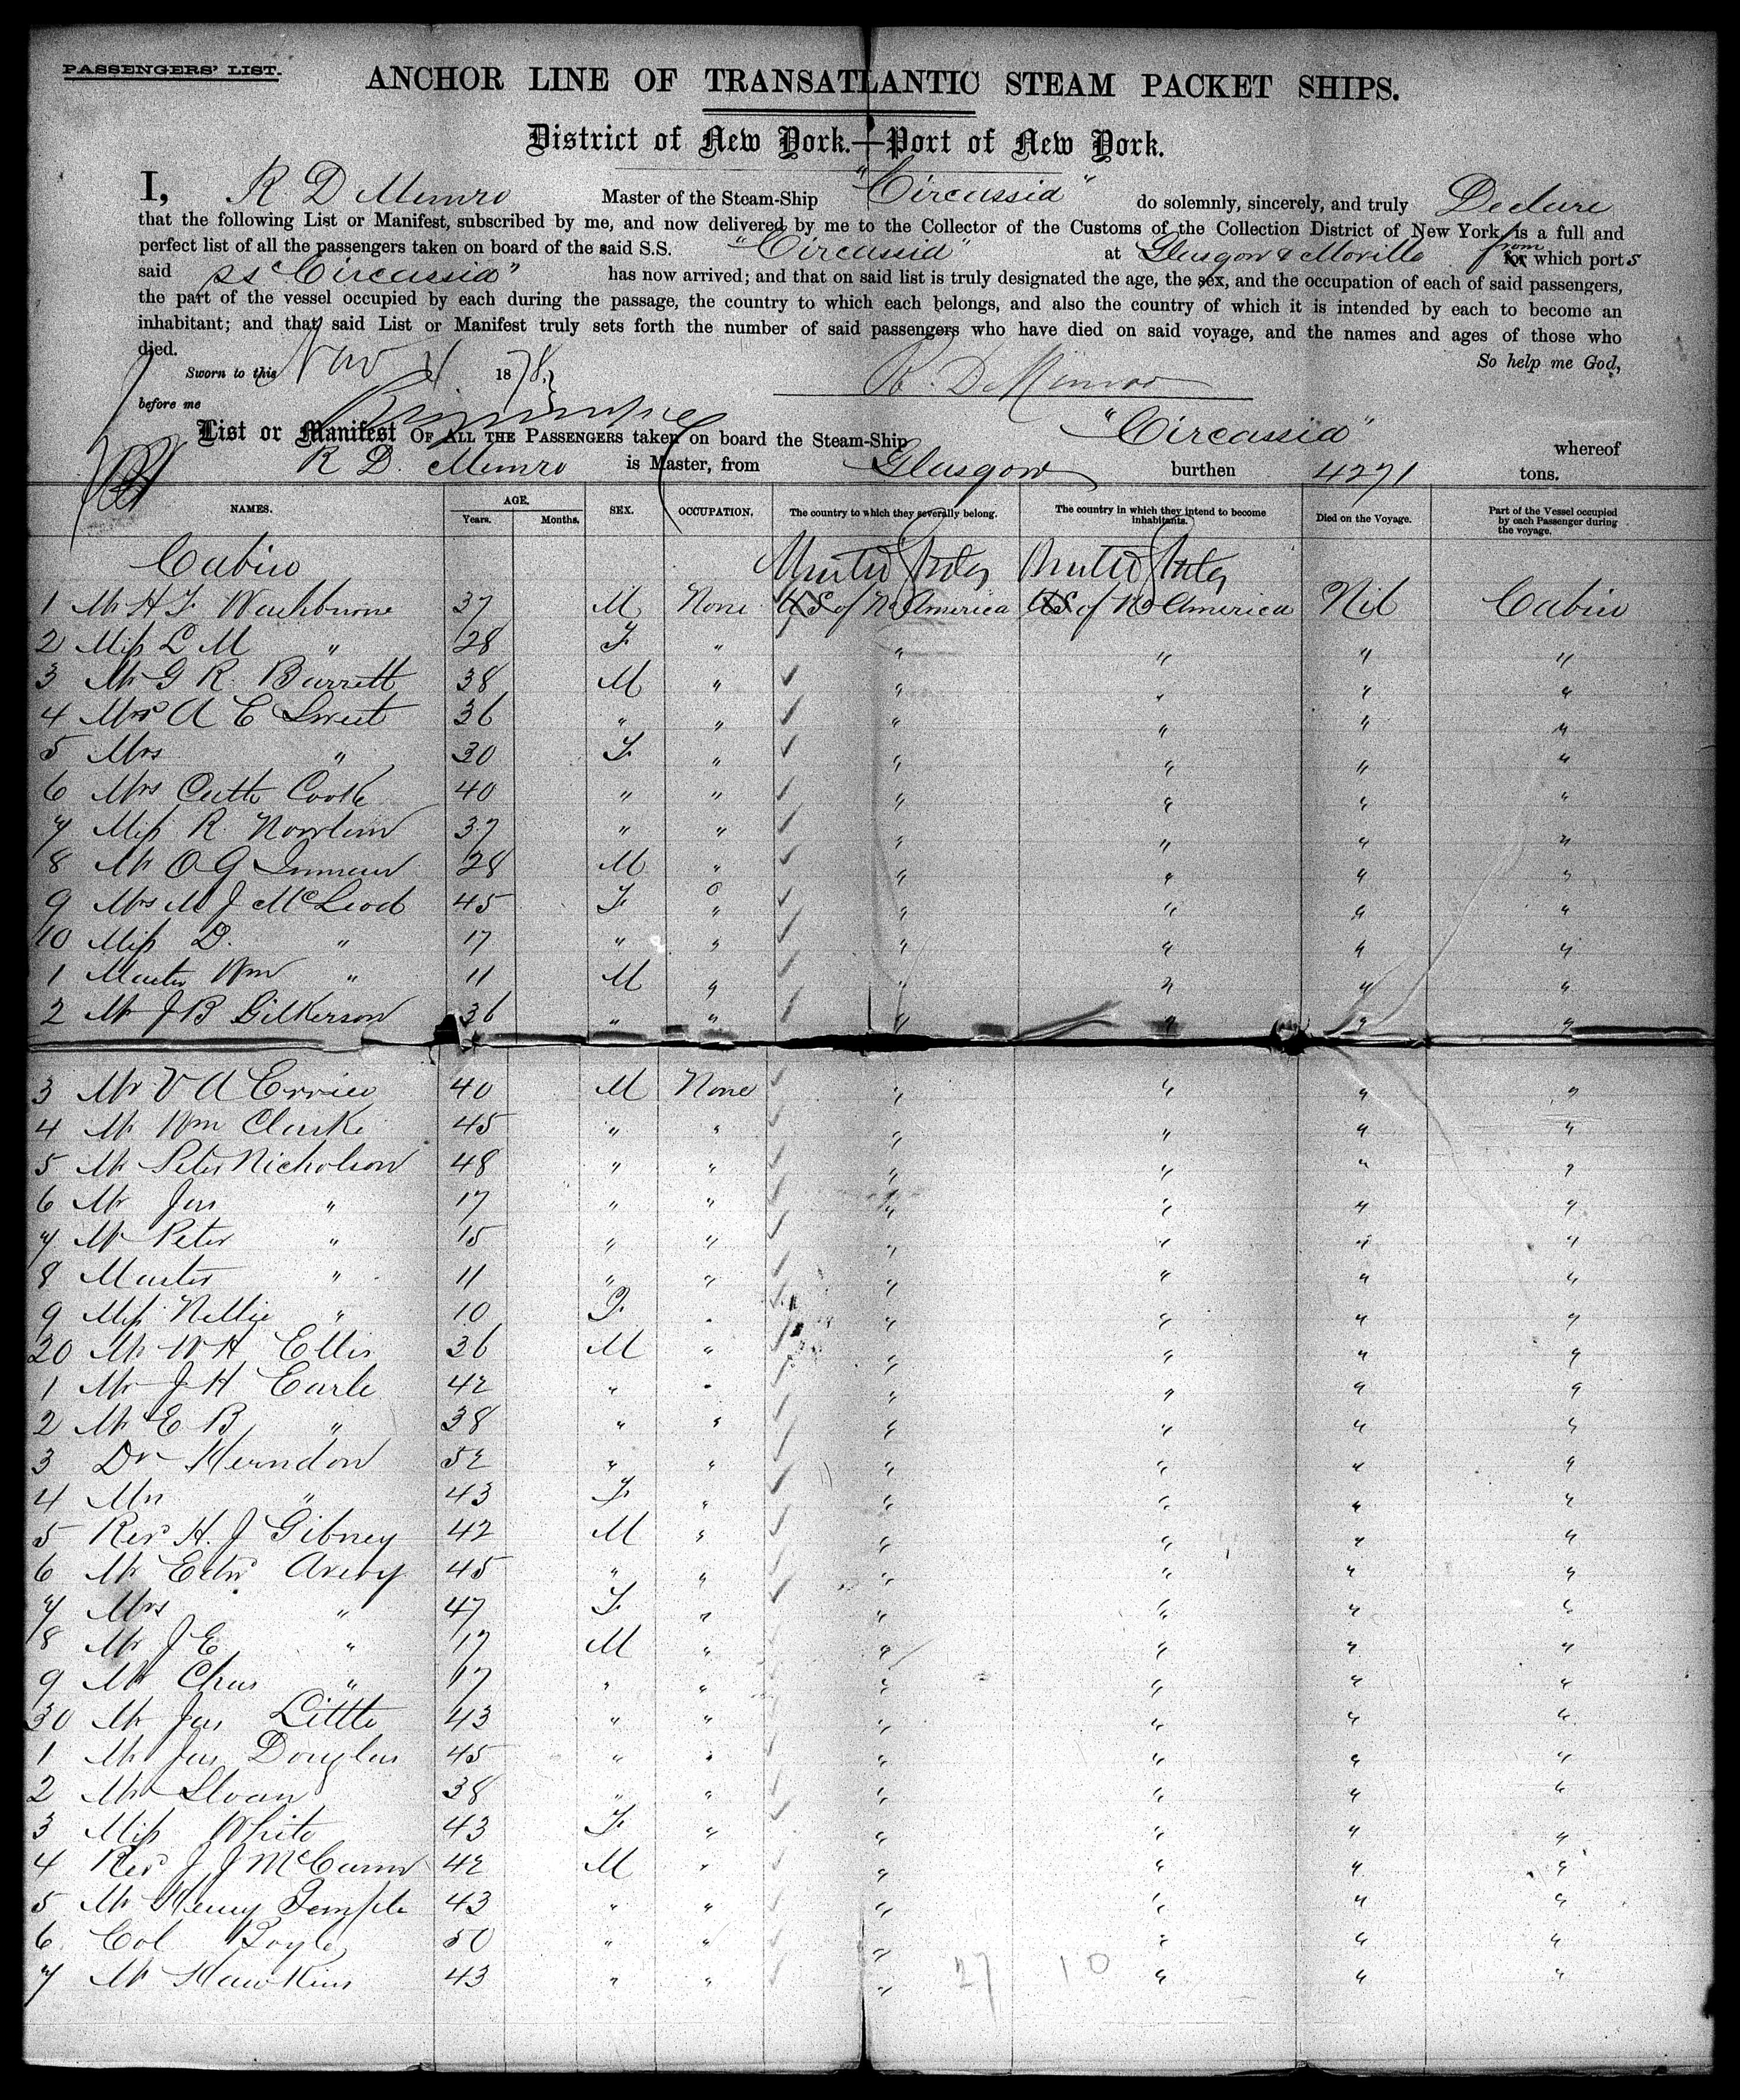 PASSENGERS' LIST.
ANCHOR LINE OF TRANSATLANTIC STEAM PACKET SHIPS.
District of New York.—Port of New York.
I, R D Munro Master of the Steam-Ship "Circassia" do solemnly, sincerely, and truly Declare
that the following List or Manifest, subscribed by me, and now delivered by me to the Collector of the Customs of the Collection District of New York, is a full and
perfect list of all the passengers taken on board of the said S.S. "Circassia" at Glasgow & Moville from for which port s
said ss "Circassia" has now arrived; and that on said list is truly designated the age, the sex, and the occupation of each of said passengers,
the part of the vessel occupied by each during the passage, the country to which each belongs, and also the country of which it is intended by each to become an
inhabitant; and that said List or Manifest truly sets forth the number of said passengers who have died on said voyage, and the names and ages of those who
died. So help me God,
Sworn to this Nov 1878 R. D Munro
before me
List or Manifest OF ALL THE PASSENGERS taken on board the Steam-Ship "Circassia" whereof
R D. Munro is Master, from Glasgow burthen 4271 tons.
NAMES. AGE. Years. Months. SEX. OCCUPATION. The country to which they severally belong. The country in which they intend to become inhabitants. Died on the Voyage. Part of the Vessel occupied by each Passenger during the voyage.
Cabin United States United States
1 Mr H F Washburne 37 M None US of No America US of No America Nil Cabin
2 Miss L M " 28 F " " " " "
3 Mr G R Barrett 38 M " " " " "
4 Mr A E Sweet 36 " " " " " "
5 Mrs " 30 F " " " " "
6 Mrs Cooke 40 " " " " " "
7 Miss R Nowlin 37 " " " " " "
8 Mr O G Inman 28 M " " " " "
9 Mrs M J McLeod 45 F " " " " "
10 Miss D. " 17 " " " " " "
1 Master Wm " 11 M " " " " "
2 Mr J B Gilkerson 36 " " " " " "
3 Mr V A 40 M None " " " "
4 Mr Wm Clarke 45 " " " " " "
5 Mr Peter Nicholson 48 " " " " " "
6 Mr Jas " 17 " " " " " "
7 Mr Peter " 15 " " " " " "
8 Master " 11 " " " " " "
9 Miss Nellie " 10 F " " " " "
20 Mr W H Ellis 36 M " " " " "
1 Mr J H Earle 42 " " " " " "
2 Mr E B " 38 " " " " " "
3 Dr Herndon 52 " " " " " "
4 Mrs " 43 F " " " " "
5 Rev H. J Gibney 42 M " " " " "
6 Mr Edw Avery 45 " " " " " "
7 Mrs " 47 F " " " " "
8 Mr J E " 17 M " " " " "
9 Mr Chas " 17 " " " " " "
30 Mr Jas Little 43 " " " " " "
1 Mr Jas Douglas 45 " " " " " "
2 Mr Sloan 38 " " " " " "
3 Miss White 43 F " " " " "
4 Rev J J McCann 42 M " " " " "
5 Mr Henry Temple 43 " " " " " "
6 Col Boyle 50 " " " " " "
7 Mr Hawkins 43 " " " " " "
27 10